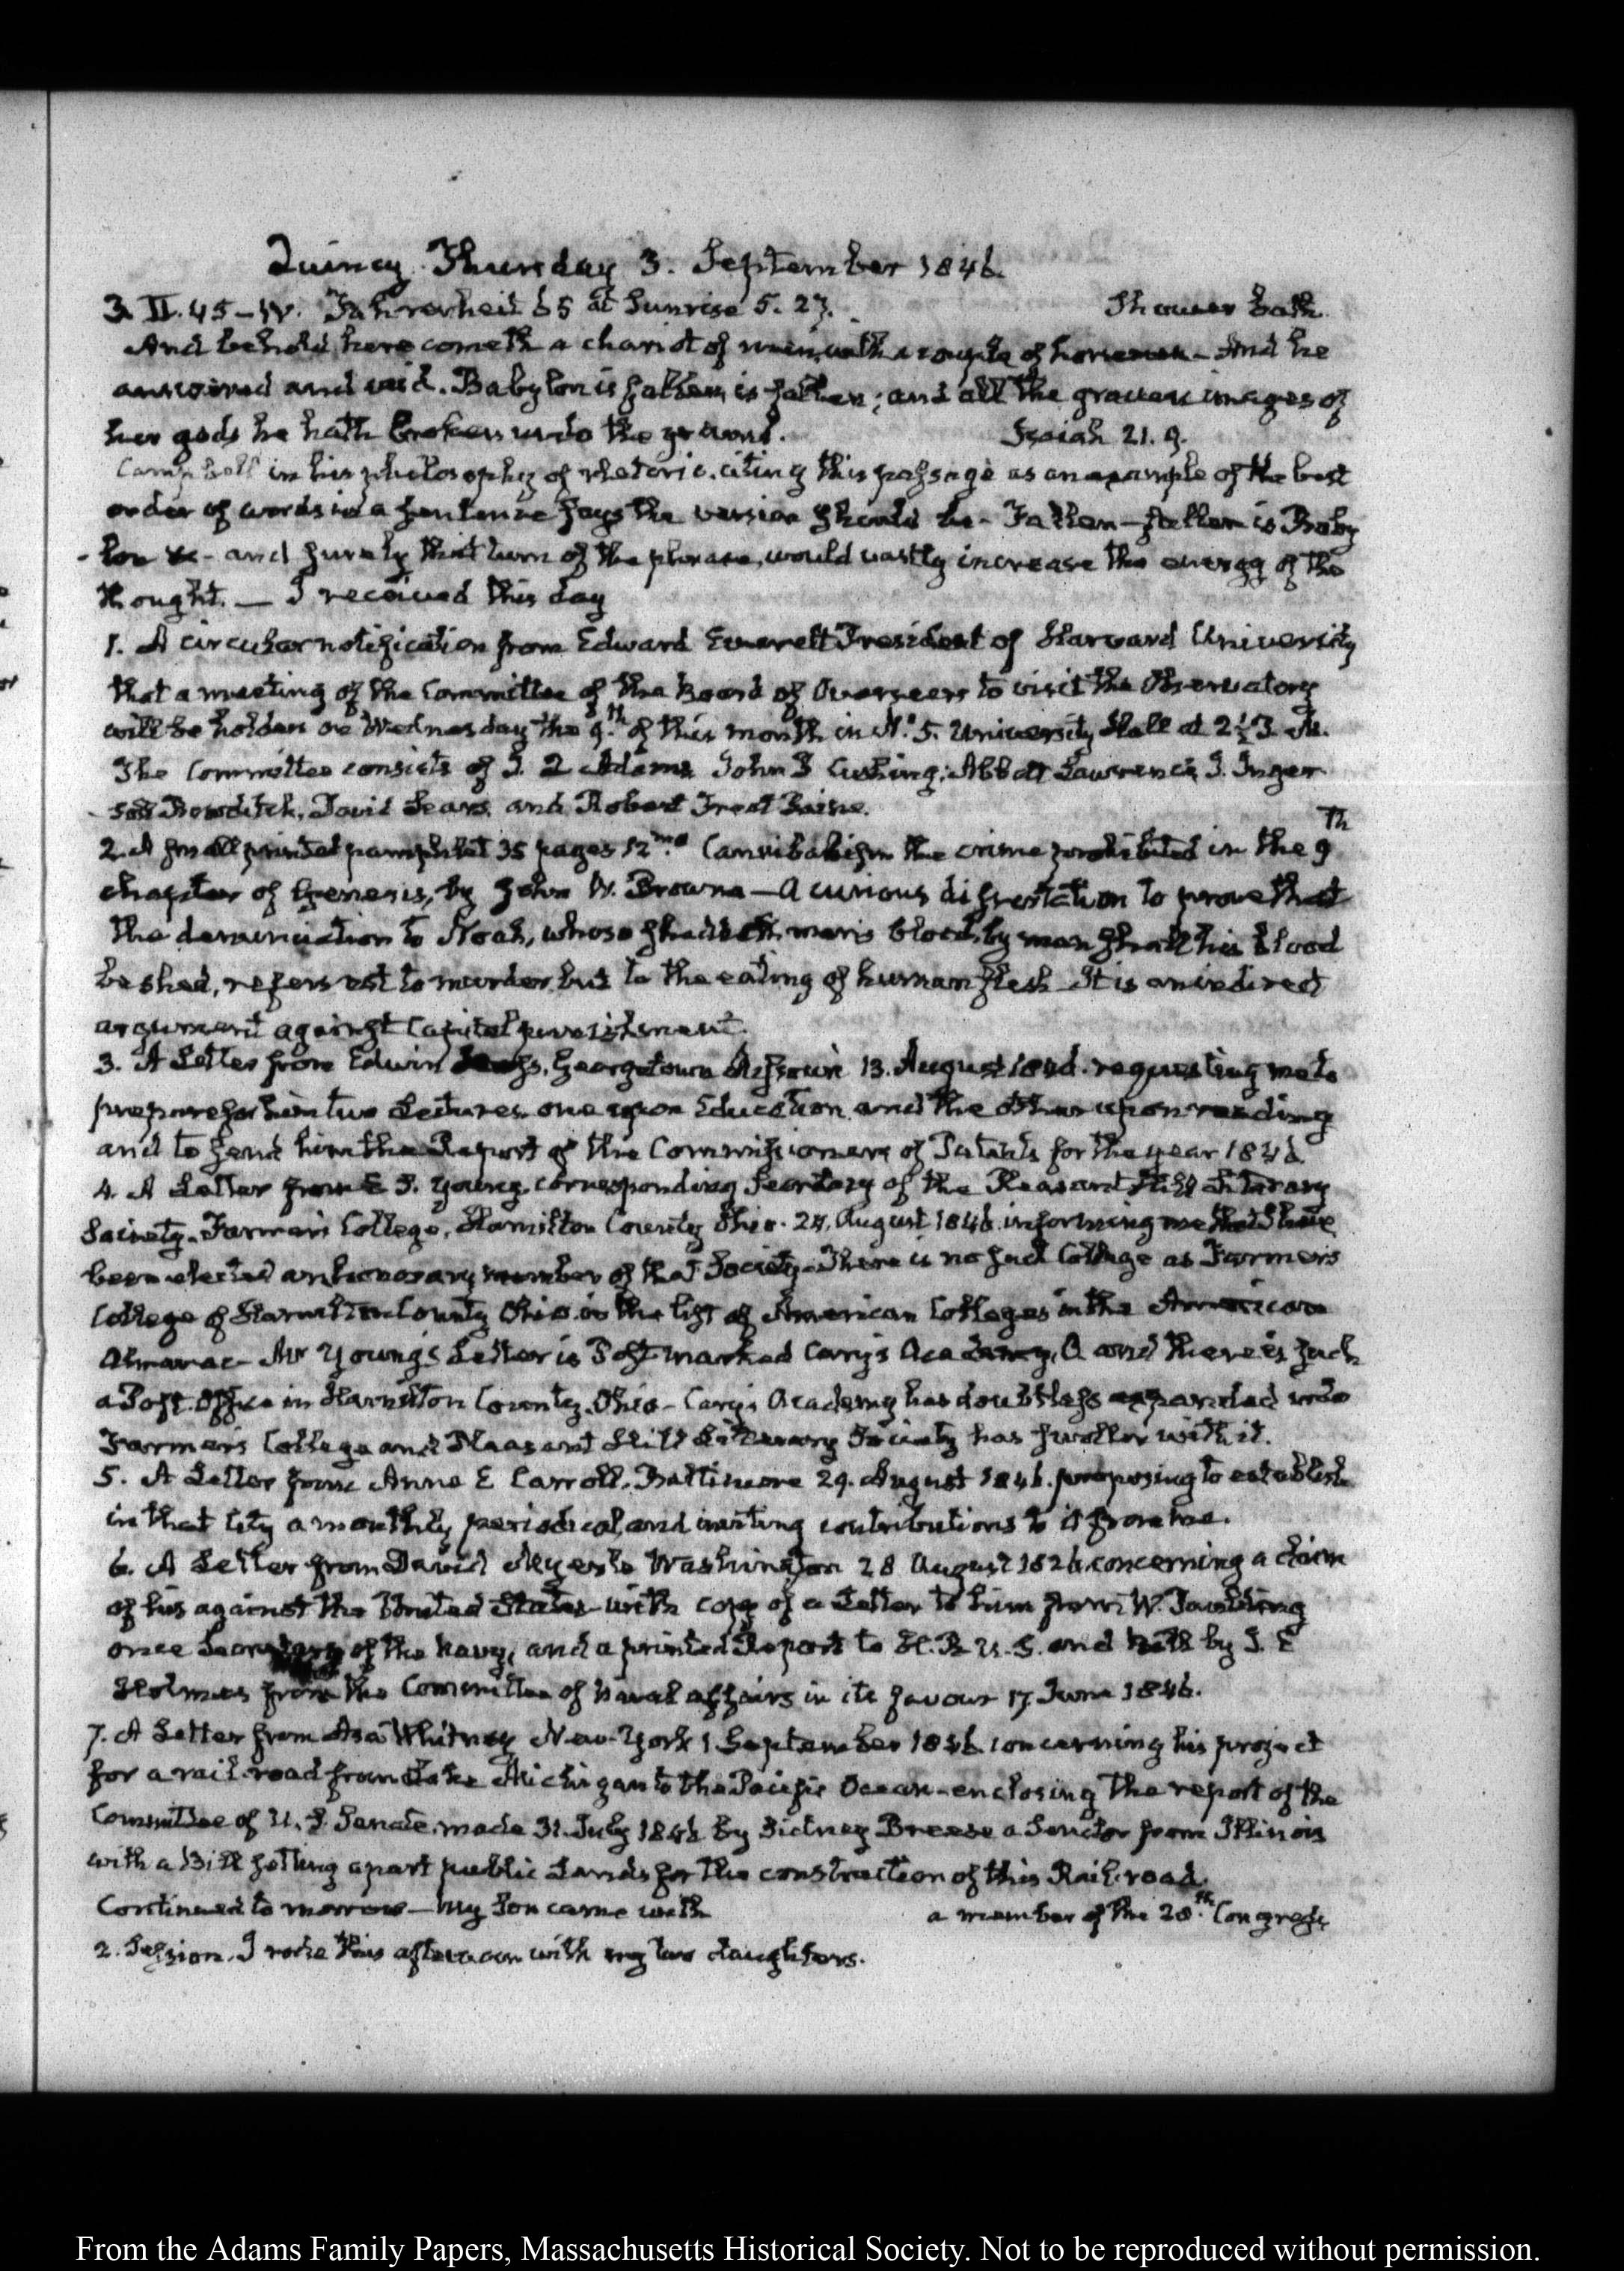 Quincy Thursday 3. September 1846.
3. II. 45 – IV. Fahrenheit 65 at Sunrise 5. 27. Shower bath.
And behold, here cometh a chariot of men, with a couple of horsemen – And he
answered and said. Babylon is fallen, is fallen; and all the graven images of
her gods he hath broken unto the ground. Isaiah 21. 9.
Campbell in his philosophy of rhetoric, citing this passage as an example of the best
order of words in a sentence says the version should be – Fallen – fallen is Baby
-lon &c – and surely that turn of the phrase, would vastly increase the energy of the
thought. — I received this day
1. A circular notification from Edward Everett President of Harvard University
that a meeting of the Committee of the Board of Overseers to visit the Observatory
will be holden on Wednesday the 9th. of this month in No. 5. University Hall at 2 1/2 P. M.
The Committee consists of J. Q Adams, John P Cushing, Abbott Lawrence, J. Inger
-soll Bowditch, David Sears, and Robert Treat Paine.
2. A small printed pamphlet 35 pages 12mo. Cannibalism the crime prohibited in the 9th
chapter of Genesis, by John W. Browne — A curious dissertation to prove that
the denunciation to Noah, whoso sheddeth man's blood, by man shall his blood
be shed, refers not to murder, but to the eating of human flesh – It is an indirect
argument against Capital punishment.
3. A Letter from Edwin Georgetown Missouri 13. August 1846. requesting me to
prepare for him two Lectures, one upon Education and the other upon reading
and to send him the Report of the Commissioners of Patents for the year 1846
4. A Letter from E J. Young, corresponding Secretary of the Pleasant Hill Literary
Society – Farmers College, Hamilton County Ohio. 24. August 1846 informing me that I have
been elected an honorary member of that Society – There is no such College as Farmers
College of Hamilton County Ohio in the list of American Colleges in the American
Almanac – Mr Young's Letter is Post marked Cary's Academy, O. and there is such
a Post. Office in Hamilton County. Ohio – Cary's Academy has doubtless expanded into
Farmer's College and Pleasant Hill Literary Society has swollen with it.
5. A Letter from Anna E Carroll, Baltimore 29. August 1846. proposing to establish
in that City a monthly periodical, and inviting contributions to it from me.
6. A Letter from David Myerle Washington 28 August 1846 concerning a claim
of his against the United States – with copy of a Letter to him from W.
once Secretary of the Navy, and a printed Report to H. R. U. S. and by I. E
Holmes from the Committee of Naval affairs in its favour 17. June 1846.
7. A Letter from Asa Whitney New-York 1 September 1846 concerning his project
for a rail-road from Lake Michigan to the Pacific Ocean – enclosing the report of the
Committee of U. S. Senate, made 31. July 1846 by Sidney Breese a Senator from Illinois
with a Bill setting apart public Lands for the construction of this Rail-road.
Continued to morrow – My Son came with a member of the 28th. Congress
2. Session. I rode this afternoon with my two daughters.
From the Adams Family Papers, Massachusetts Historical Society. Not to be reproduced without permission.